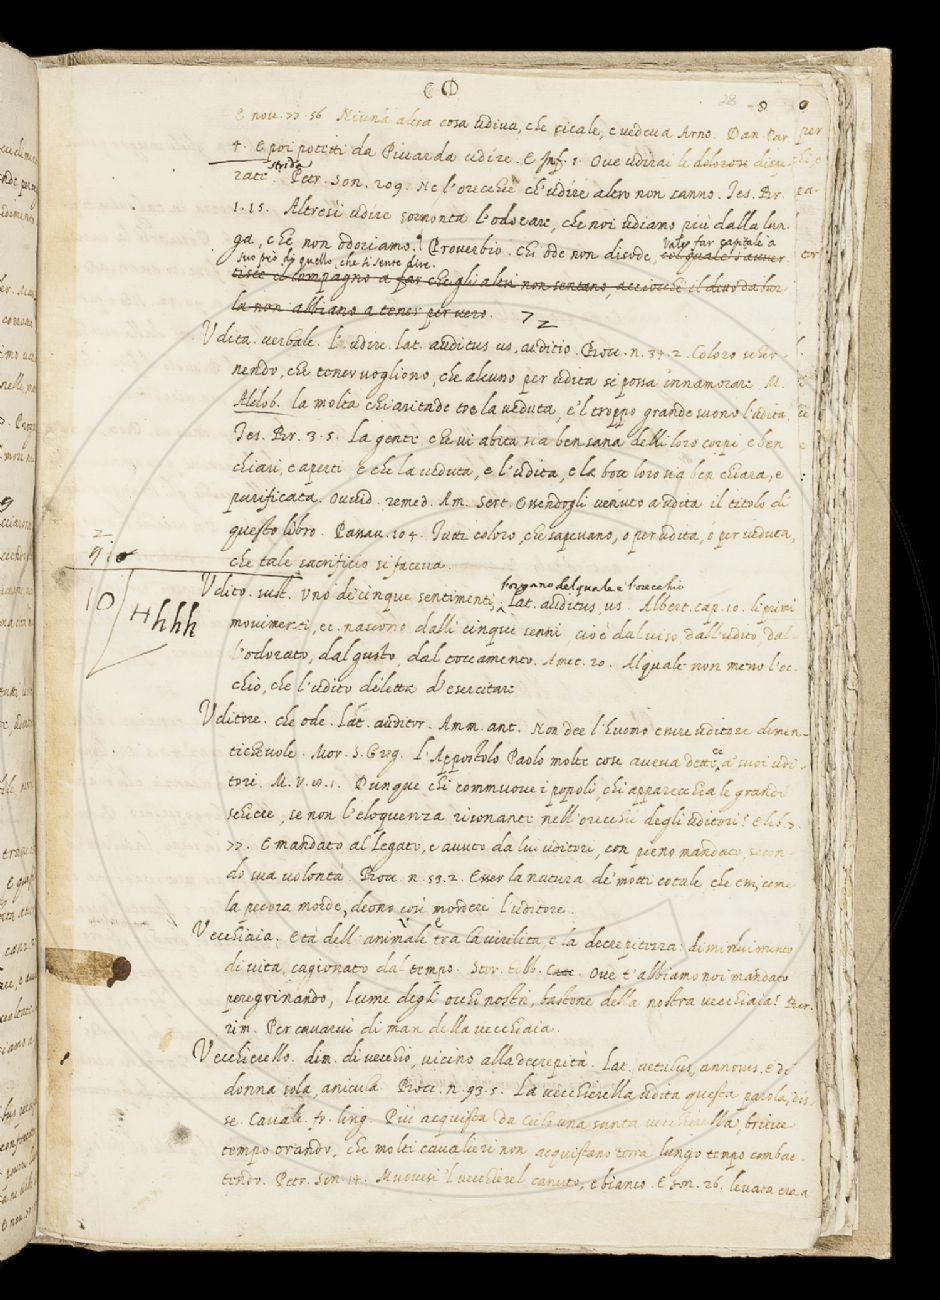 28
E nov. 77. 56. Niuna altra cosa udiva, che cicale, e vedeva Arno. Dan. Par.
4. E poi potesti da Piccarda udire. E Inf. 1. Ove udirai le
strida
Petr. Son. 209. Nè l'orecchie ch'udire altro non sanno. Tes. Br.
1. 15. Altresì udire sormonta l'odorare, che noi udiamo più dalla lun-
ga, che non odoriamo. Proverbio. chi ode non disode,
vale, far capitale a
suo prò di quello, che si sente dire.
il compagno a far che gli altri non sentano, acciocchè il
la non abbiano a tener per vero. 72
Udita. verbale. l'udire. lat. auditus us, auditio. Bocc. n. 37. 2. Coloro scher-
nendo, che tener vogliono, che alcuno per udita si possa innamorare. M.
Aldob. la molta chiaritade tre la veduta, e 'l troppo grande suono l'udita.
Tes. Br. 3. 5. La gente che vi abita sia ben sana delli loro corpi, e ben
chiari, e aperti e che la veduta, e l'udita, e la boce loro sia ben chiara, e
purificata. Ovvid. remed. Am. Essendogli venuto a udita il titolo di
questo libro. Passav. 104. Tutti coloro, che sapevano, o per udita, o per veduta,
che tale sacrificio si faceva.
10 Hhhh
Udito. sust. Uno de cinque sentimenti,
l'organo del quale è l'orecchio
Lat. auditus, us. Albert. cap. 10. li primi
movimenti, ec. nascono dalli cinque senni, cioè dal viso dall'udito, dal-
l'odorato, dal gusto, dal toccamento. Amet. 20. Al quale non meno l'oc-
chio, che l'udito diletta d'esercitare
Uditore. che ode. Lat. auditor. Amm. ant. Non dee l'huomo essere uditore dimen-
tichevole. Mor. S. Greg. L'Appostolo Paolo molte cose aveva dette a' suoi udi-
tori. M. V. 8. 1. Dunque chi commuove i popoli, chi apparecchia le grandi
schiere, se non l'eloquenza risonante nell'orecchie degli uditori? E lib. 7.
77. E mandato al Legato, e avuto da lui uditore, con pieno mandato, secon-
do sua volontà. Bocc. n. 53. 2. Esser la natura de' motti cotale che essi, come
la pecora morde, deono così mordere l'uditore.
Vecchiaia. Età dell'animale tra la virilità, e la decrepitezza: diminuimento
di vita, cagionato dal tempo. Stor. Tobb. Ove t'abbiamo noi mandato
peregrinando, lume degli occhi nostri, bastone della nostra vecchiaia? Ber.
rim. Per cavarvi di man della vecchiaia.
Vecchierello. dim. di vecchio, vicino alla decrepità. Lat. vetulus, annosus. E di
donna sola, anicula. Bocc. n. 93. 5. La vecchierella udita questa parola, dis-
se. Cavalc. fr. ling. Più acquista da Cielo una santa vecchierella, brieve
tempo orando, che molti cavalieri non acquistano terra lungo tempo combat-
tendo. Petr. Son. 14. Muovesi 'l vecchierel canuto, e bianco. E Son. 26. levata era a